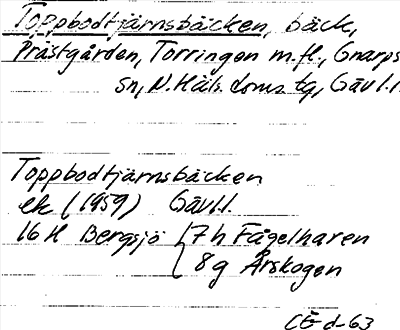 Toppbodtjärnsbäcken, bäck,
Prästgården, Torringen m.fl., Gnarps
sn, N. Häls. doms. tg, Gävl.
Toppbodtjärnsbäcken
ek (1959) Gävl.l.
16 H Bergsjö 7 h Fågelharen
8 g Årskogen
CE d-63